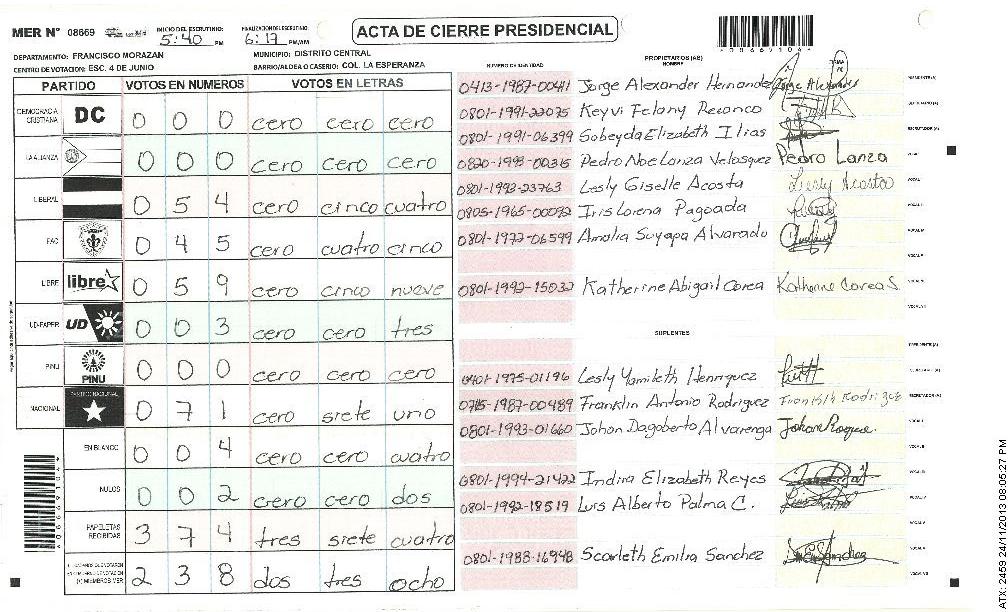 MER Nº 08669 INICIO DEL ESCRUTINIO: 5:40 PM FINALIZACION DEL ESCRUTINIO: 6:17 PM/AM ACTA DE CIERRE PRESIDENCIAL
DEPARTAMENTO: FRANCISCO MORAZAN MUNICIPIO: DISTRITO CENTRAL
CENTRO DE VOTACION: ESC. 4 DE JUNIO BARRIO/ALDEA O CASERIO: COL. LA ESPERANZA
PARTIDO VOTOS EN NUMEROS VOTOS EN LETRAS
DEMOCRACIA CRISTIANA DC 0 0 0 cero cero cero
LA ALIANZA 0 0 0 cero cero cero
LIBERAL 0 5 4 cero cinco cuatro
FAC 0 4 5 cero cuatro cinco
LIBRE libre 0 5 9 cero cinco nueve
UD-FAPER UD 0 0 3 cero cero tres
PINU PINU 0 0 0 cero cero cero
NACIONAL PARTIDO NACIONAL 0 7 1 cero siete uno
EN BLANCO 0 0 4 cero cero cuatro
NULOS 0 0 2 cero cero dos
PAPELETAS RECIBIDAS 3 7 4 tres siete cuatro
(+) MIEMBROS MER 2 3 8 dos tres ocho
NUMERO DE IDENTIDAD PROPIETARIOS (AS) NOMBRE FIRMA
0413-1987-00411 Jorge Alexander Hernandez Jorge Alexander PRESIDENTE (A)
0801-1991-22075 Keyvi Felany
0801-1991-06399 Sobeyda Elizabeth Ilias ESCRUTADOR (A)
0820-1993-00315 Pedro Noe Lanza Velasquez Pedro Lanza
0801-1993-23763 Lesly Giselle Acosta Lesly Acosta
0805-1965-00092 Iris Lorena Pagoada
0801-1972-06599 Amalia Suyapa Alvarado
0801-1992-15032 Katherine Abigail Corea Katherine Corea S.
SUPLENTES
PRESIDENTE (A)
1975-01196 Lesly Yamileth Henriquez
1987-00489 Franklin Antonio Rodriguez Franklin Rodriguez
0801-1993-01660 Johan Dagoberto Alvarenga
0801-1994-21422 Indira Elizabeth Reyes
0801-1992-18519 Luis Alberto Palma C.
0801-1983-16948 Scarleth Emilia Sanchez
ATX: 2459 24/11/2013 08:05:27 PM